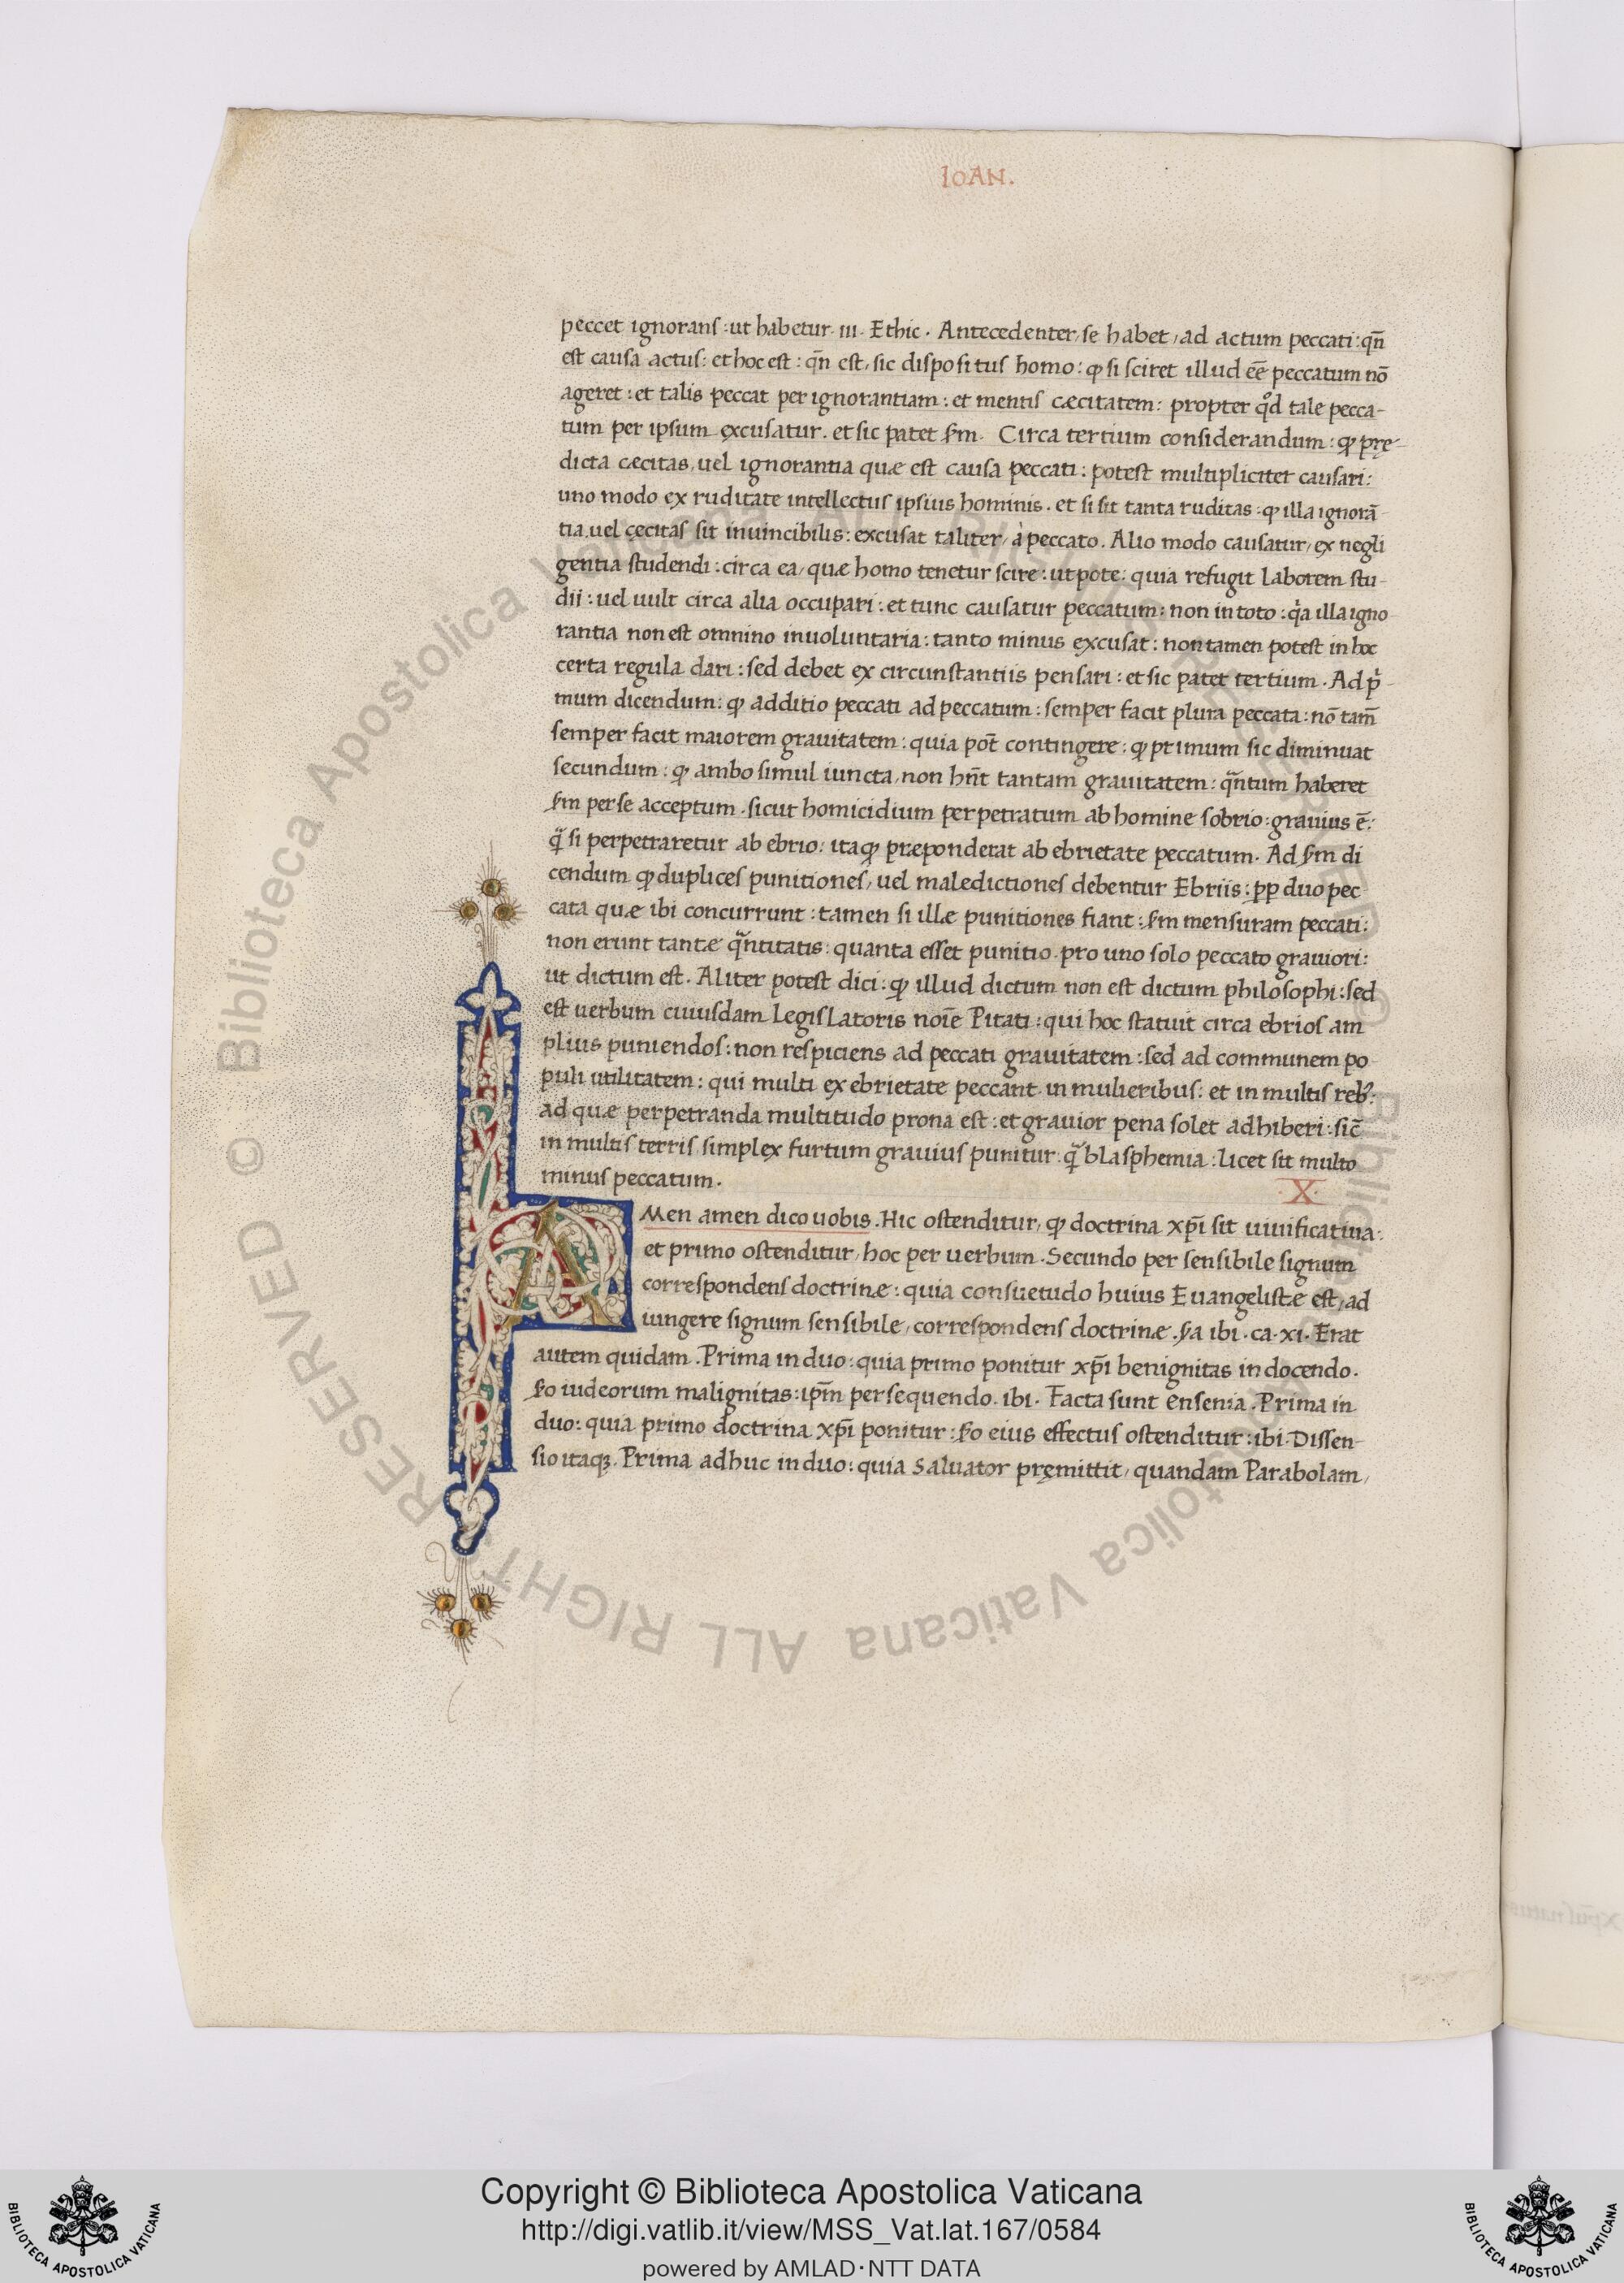 IOAN.
peccet ignorans: ut habetur. iii. Ethic. Antecedenter, se habet, ad actum peccati: qn̄
est causa actus: et hoc est: qn̄ est, sic dispositus homo: ꝙ si sciret illud eē peccatum nō
ageret: et talis peccat per ignorantiam: et mentis cæcitatem: propter qd̊ tale pecca-
tum per ipsum excusatur. et sic patet ẜm. Circa tertium considerandum: ꝙ prę-
dicta cæcitas, uel ignorantia quæ est causa peccati: potest multipliciter causari:
uno modo ex ruditate intellectus ipsius hominis. et si sit tanta ruditas: ꝙ illa ignorā-
tia, uel cęcitas sit inuincibilis: excusat taliter, à peccato. Alio modo causatur, ex negli
gentia studendi: circa ea, quæ homo tenetur scire: utpote: quia refugit laborem stu-
dii: uel uult circa alia occupari: et tunc causatur peccatum: non in toto: qa illa igno
rantia non est omnino inuoluntaria: tanto minus excusat: non tamen potest in hoc
certa regula dari: sed debet ex circunstantiis pensari: et sic patet tertium. Ad p̍-
mum dicendum: ꝙ additio peccati ad peccatum: semper facit plura peccata: nō tam̄
semper facit maiorem grauitatem: quia pōt contingere: ꝙ primum sic diminuat
secundum: ꝙ ambo simul iuncta, non hn̄t tantam grauitatem: qñtum haberet
ẜm per se acceptum. sicut homicidium perpetratum ab homine sobrio: grauius ē:
q̃ si perpetraretur ab ebrio: itaꝙ præponderat ab ebrietate peccatum. Ad ẜm di
cendum ꝙ duplices punitiones, uel maledictiones debentur Ebriis: ꝓp duo pec
cata quæ ibi concurrunt: tamen si illæ punitiones fiant: ẜm mensuram peccati:
non erunt tantæ qñtitatis: quanta esset punitio. pro uno solo peccato grauiori:
ut dictum est. Aliter potest dici: ꝙ illud dictum non est dictum philosophi: sed
est uerbum cuiusdam Legislatoris noīe Pitati: qui hoc statuit circa ebrios am
plius puniendos: non respiciens ad peccati grauitatem: sed ad communem po
puli utilitatem: qui multi ex ebrietate peccant in mulieribus: et in multis reb⁹:
ad quæ perpetranda multitudo prona est: et grauior pena solet adhiberi: sic̄
in multis terris simplex furtum grauius punitur: q̃ blasphemia: licet sit multo
minus peccatum.
.X.
AMen amen dico uobis. Hic ostenditur, ꝙ doctrina xp̄i sit uiuificatiua:
et primo ostenditur, hoc per uerbum. Secundo per sensibile signum
correspondens doctrinæ: quia consuetudo huius Euangelistæ est, ad
iungere signum sensibile, correspondens doctrinæ. ẜa ibi. ca. xi. Erat
autem quidam. Prima in duo: quia primo ponitur xp̄i benignitas in docendo.
ẜo iudeorum malignitas: ip̄m persequendo. ibi. Facta sunt Ensenia. Prima in
duo: quia primo doctrina xp̄i ponitur: ẜo eius effectus ostenditur: ibi. Dissen-
sio itaqꝫ. Prima adhuc in duo: quia Saluator pręmittit, quandam Parabolam,
© Biblioteca Apostolica Vaticana ALL RIGHTS RESERVED
Copyright © Biblioteca Apostolica Vaticana
http://digi.vatlib.it/view/MSS_Vat.lat.167/0584
powered by AMLAD·NTT DATA
BIBLIOTECA APOSTOLICA VATICANA
BIBLIOTECA APOSTOLICA VATICANA